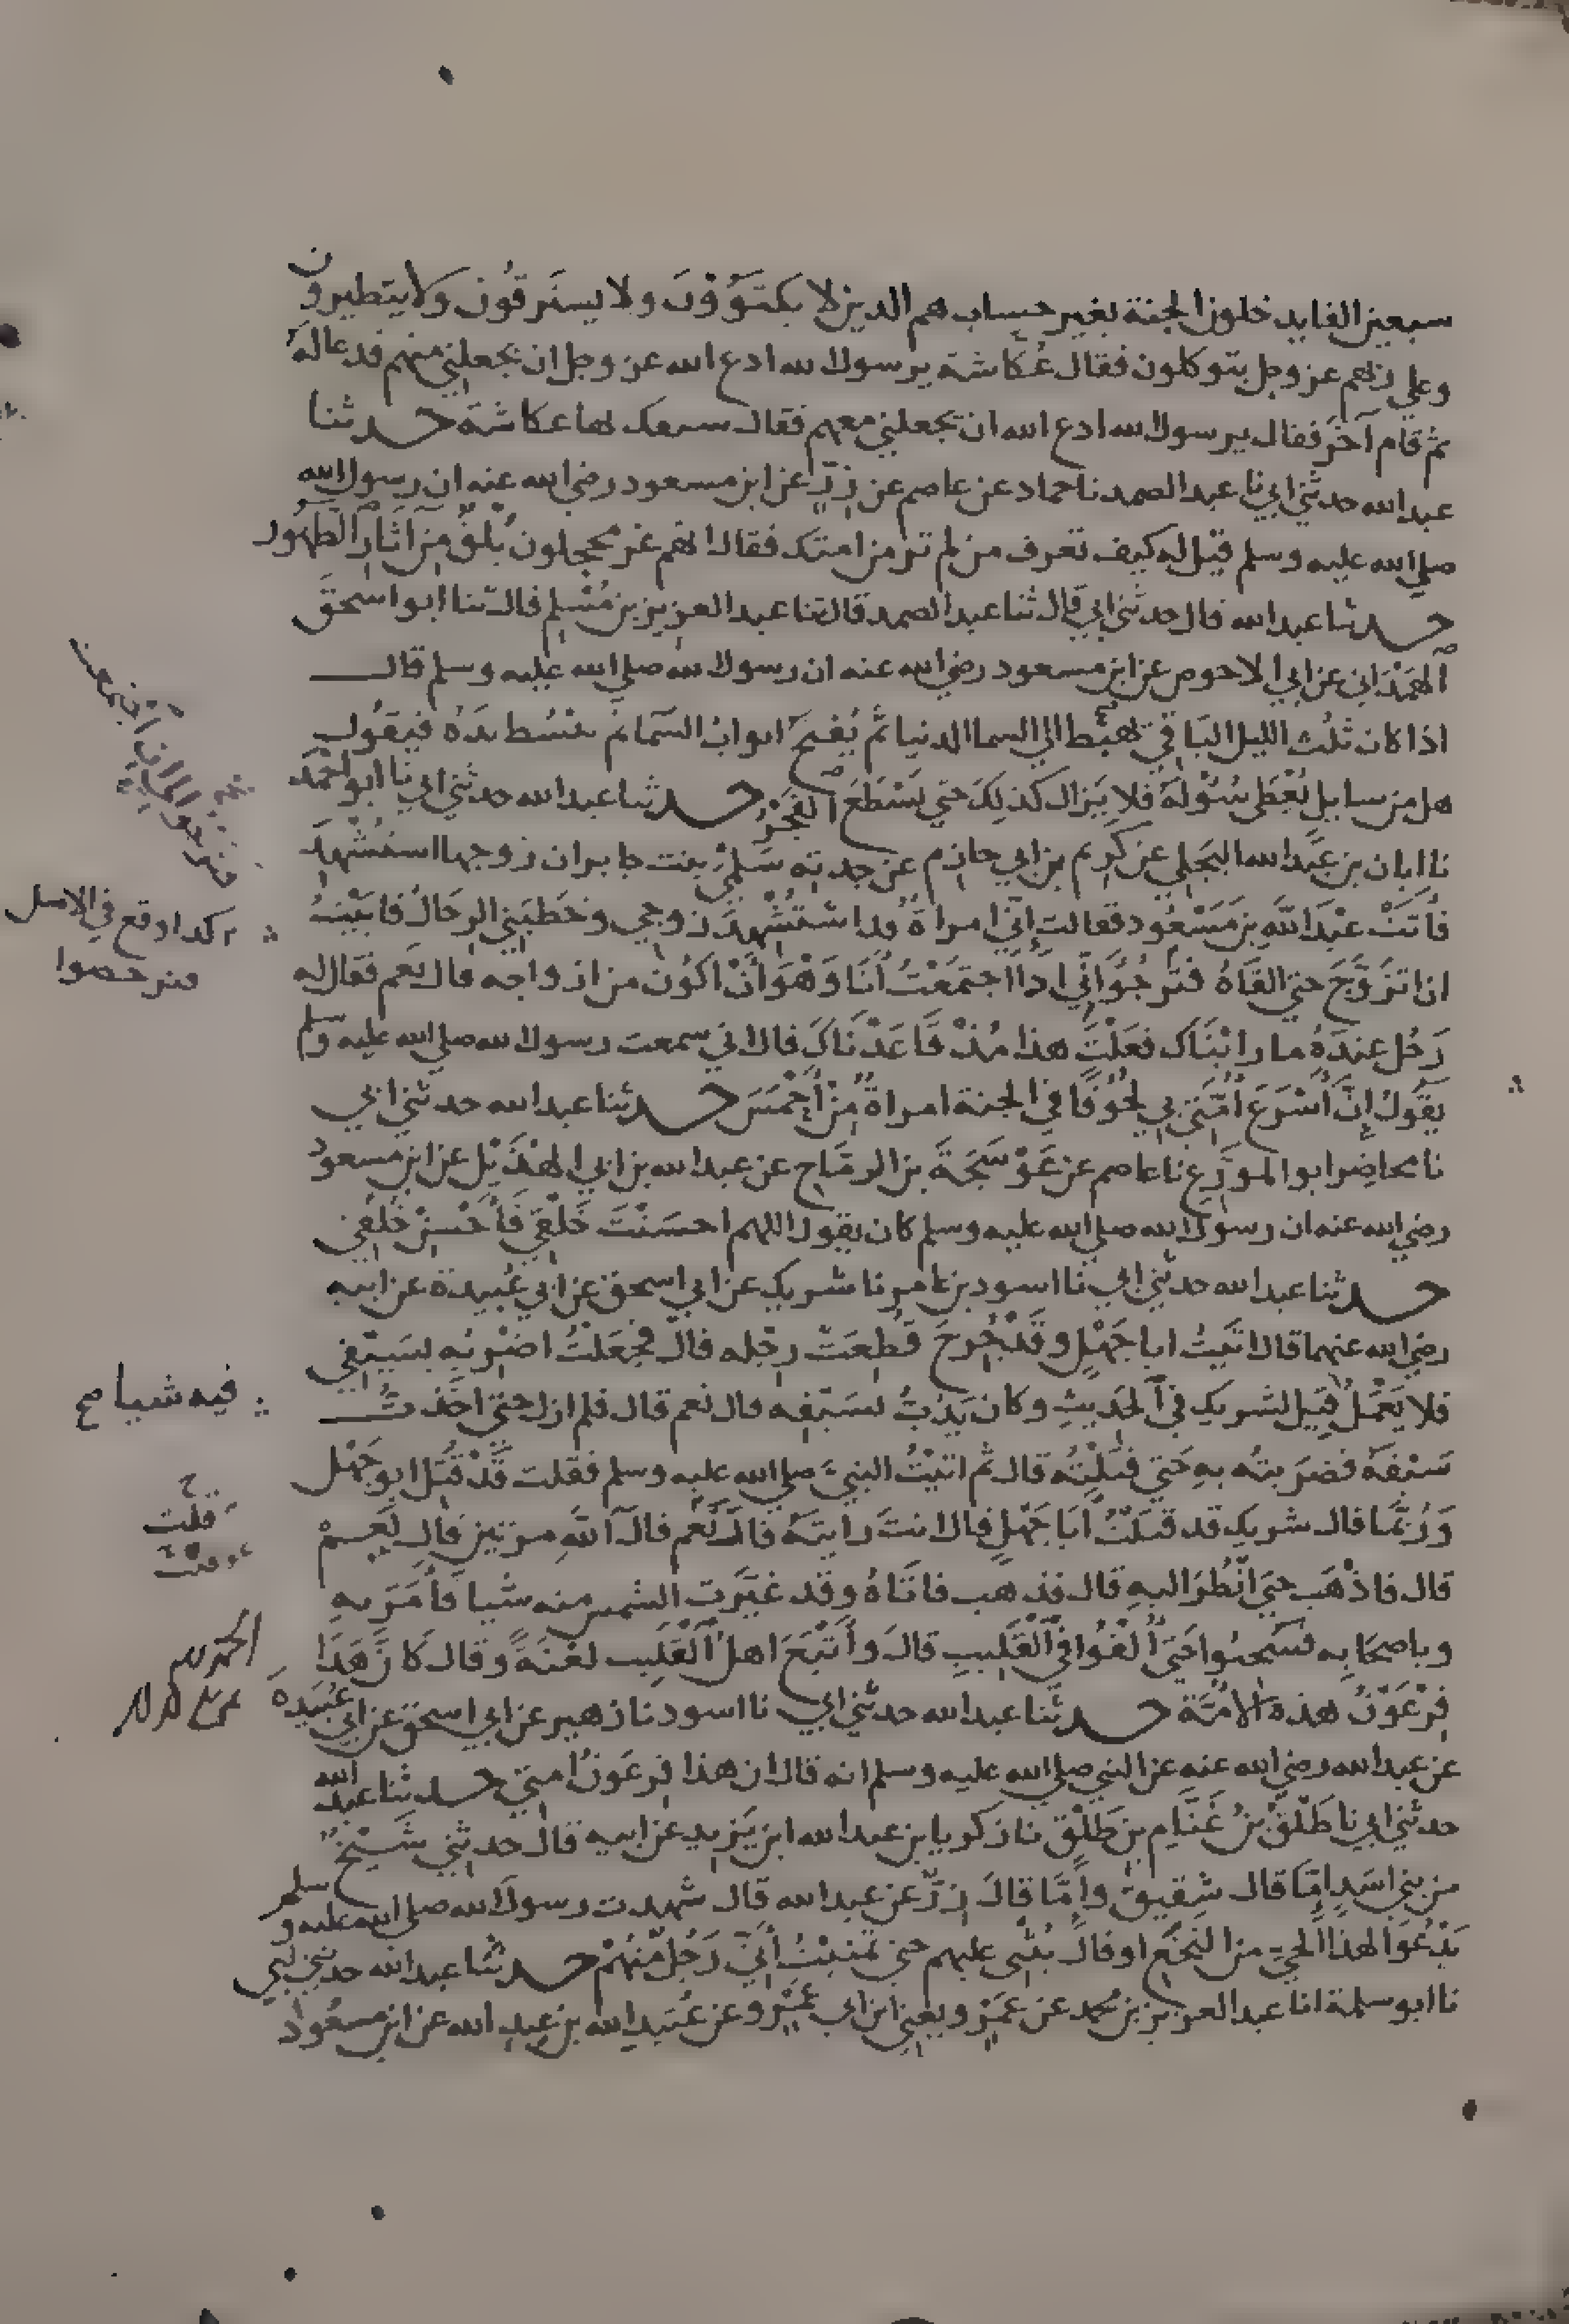 سبعين الفا يدخلون الجنة بغير حساب هم الذين لا يكتوون ولا يسترقون ولا يتطيرون
وعلى ربهم عز وجل يتوكلون فقال عكاشة يرسول الله ادع الله عز وجل ان يجعلني منهم فدعا له
ثم قام آخر فقال يرسول الله ادع الله ان يجعلني معهم فقال سبقك بها عكاشة حدثنا
عبد الله حدثني ابي نا عبد الصمد نا حماد عن عاصم عن زر عن ابن مسعود رضي الله عنه ان رسول الله
صلى الله عليه وسلم قيل له كيف تعرف من لم تر من امتك فقال انهم غر محجلون بلق من آثار الطهور
حدثنا عبد الله قال حدثني ابي قال ثنا عبد الصمد قال ثنا عبد العزيز بن مسلم قال ثنا ابو اسحق
الهمداني عن ابي الاحوص عن ابن مسعود رضي الله عنه ان رسول الله صلى الله عليه وسلم قال
اذا كان ثلث الليل الباقي يهبط الى السما الدنيا ثم يفتح ابواب السما ثم يبسط يده فيقول
هل من سايل يعطى سؤله فلا يزال كذلك حتى يسطع الفجر حدثنا عبد الله حدثني ابي نا ابو احمد
نا ابان بن عبد الله البجلي عن كريم بن ابي حازم عن جدته سلمى بنت جابر ان زوجها استشهد
فأتت عبد الله بن مسعود فقالت إني امراة قد استشهد زوجي وخطبني الرجال فابيت
ان اتزوج حتى القاه فترجوا لي اذا اجتمعت أنا وهو أن اكون من ازواجه قال نعم فقال له
رجل عنده ما رايناك فعلت هذا مذ قاعدناك قال اني سمعت رسول الله صلى الله عليه وسلم
يقول إن أسرع أمتي بي لحوقا في الجنة امراة من أحمس حدثنا عبد الله حدثني ابي
نا محاضر ابو المورع نا عاصم عن عوسجة بن الرماح عن عبد الله بن ابي الهذيل عن ابن مسعود
رضي الله عنه ان رسول الله صلى الله عليه وسلم كان يقول اللهم احسنت خلقي فأحسن خلقي
حدثنا عبد الله حدثني ابي نا اسود بن عامر نا شريك عن ابي اسحق عن ابي عبيدة عن ابيه
رضي الله عنهما قال اتيت ابا جهل وقد جرح قطعت رجله قال فجعلت اضربه بسيفي
فلا يعمل قيل لشريك في الحديث وكان يذب بسيفه قال نعم قال فلم ازل حتى اخذت
سيفه فضربته به حتى قتلته قال ثم اتيت النبي صلى الله عليه وسلم فقلت قد قتل ابو جهل
وربما قال شريك قد قتلت أبا جهل قال انت رايته قال نعم قال آلله مرتين قال نعم
قال فاذهب حتى انظر اليه قال فذهب فاتاه وقد غيرت الشمس منه شيا فأمر به
وباصحابه فسحبوا حتى ألقوا في القليب قال وأتبع اهل القليب لعنة وقال كان هذا
فرعون هذه الامة حدثنا عبد الله حدثني ابي نا اسود نا زهير عن ابي اسحق عن ابي عبيدة
عن عبد الله رضي الله عنه عن النبي صلى الله عليه وسلم انه قال ان هذا فرعون امتي حدثنا عبد الله
حدثني ابي نا طلق بن غنام بن طلق نا زكريا بن عبد الله ابن يزيد عن ابيه قال حدثني شيخ
من بني اسد إما قال شقيق وإما قال زر عن عبد الله قال شهدت رسول الله صلى الله عليه وسلم
يدعوا لهذا الحي من النخع او قال يثني عليهم حتى تمنيت أني رجل منهم حدثنا عبد الله حدثني ابي
نا ابو سلمة انا عبد العزيز بن محمد عن عمرو يعني ابن ابي عمرو عن عبيد الله بن عبد الله عن ابن مسعود
كذا وقع في الاصل
فيه شيا صح
قلت
الحمد لله